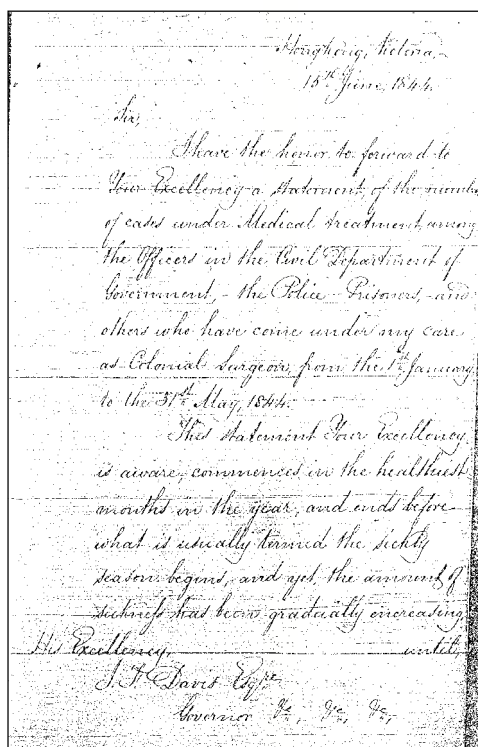 Hongkong, Victoria,
15th June, 1844.
Sir,
I have the honor to forward to
Your Excellency a statement, of the number
of cases under Medical treatment, among
the Officers in the Civil Department of
Government, - the Police - Prisoners, - and
others who have come under my care
as Colonial Surgeon, from the 1st January
to the 31st May, 1844.
This statement Your Excellency
is aware, commences in the healthiest
months in the year, and ends before
what is usually termed the sickly
season begins, and yet, the amount of
sickness has been gradually increasing,
until,
His Excellency,
J. F. Davis Esqre.
Governor &c, &c, &c,